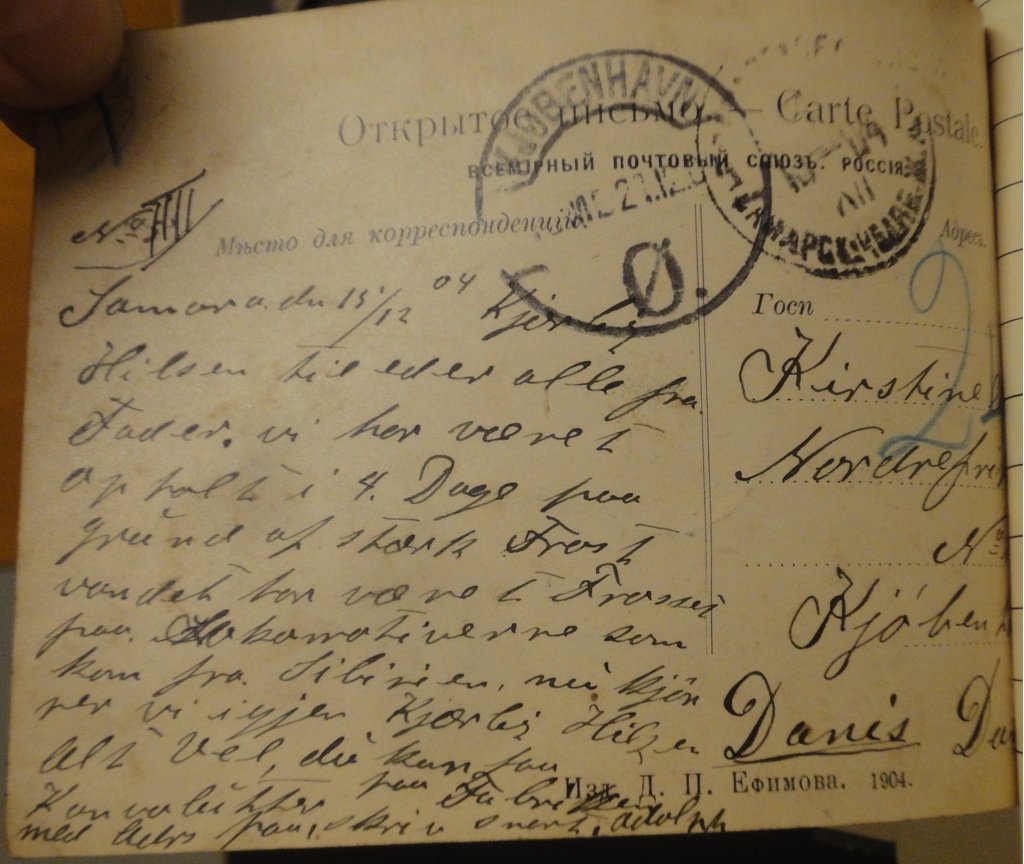 Открытое письмо. — Carte Postale.
ВСЕМIРНЫЙ ПОЧТОВЫЙ СОЮЗЪ. РОССIЯ.
KJØBENHAVN
Ø.
Мѣсто для корреспонденціи
Адресъ.
Samara. du 15/12 04 Kjerlig
Hilsen til eder alle fra
Fader. vi har været
opholt i 4. Dage paa
grund af stærk Frost
vandet har været Frossen
paa. Lokomotiverne som
kom fra. Sibirien. nu kjør
rer vi igjen Kjærlig Hilsen
Alt Vel, du kan faa
Konvolutter paa Fabrikken
med Adrs paa, skriv snart. Adolph
Госп
Kirstine
Nordrefri
No
Kjöben
Danis
Изд. Д. П. Ефимова. 1904.